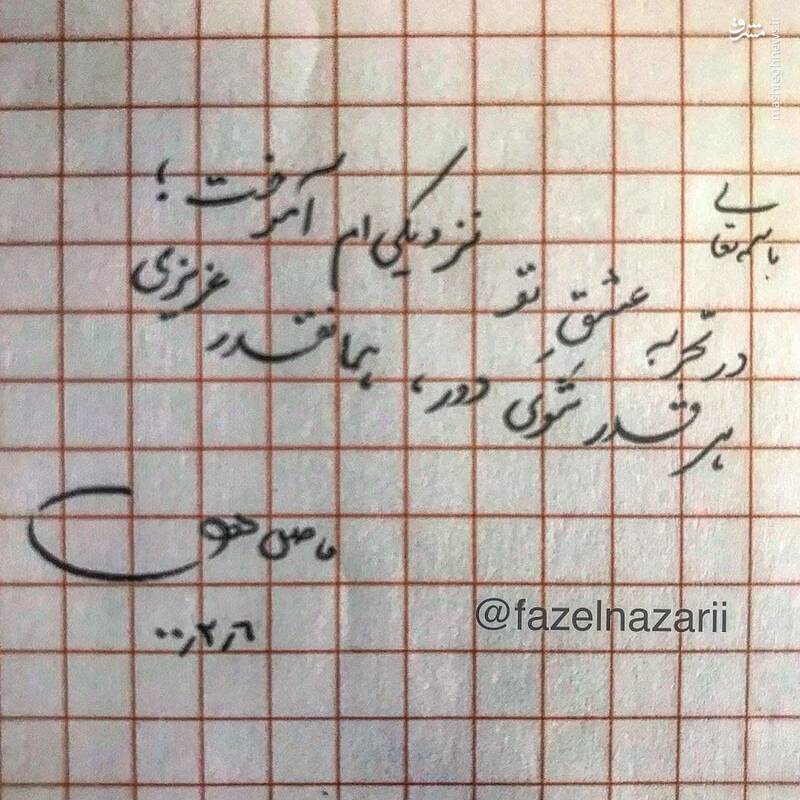 مشرق
mashreghnews.ir
باسمه تعالی
در تجربه عشقِ تو نزدیکی ام آموخت؛
هر قدر شَوَی دور، همانقدر عزیزی
۰۰٫۲٫۶
@fazelnazarii